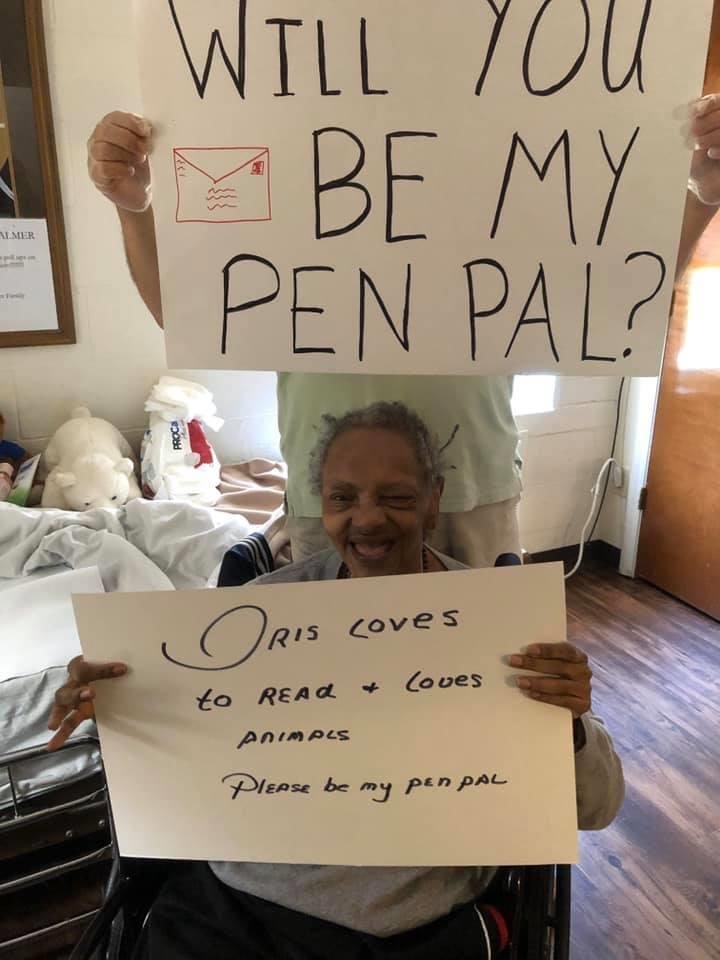 WILL YOU
BE MY
PEN PAL?
ALMER
Family
PROCa
ORIS LOVeS
to READ + LOVeS
ANIMALS
PLEASE be my pen PAL